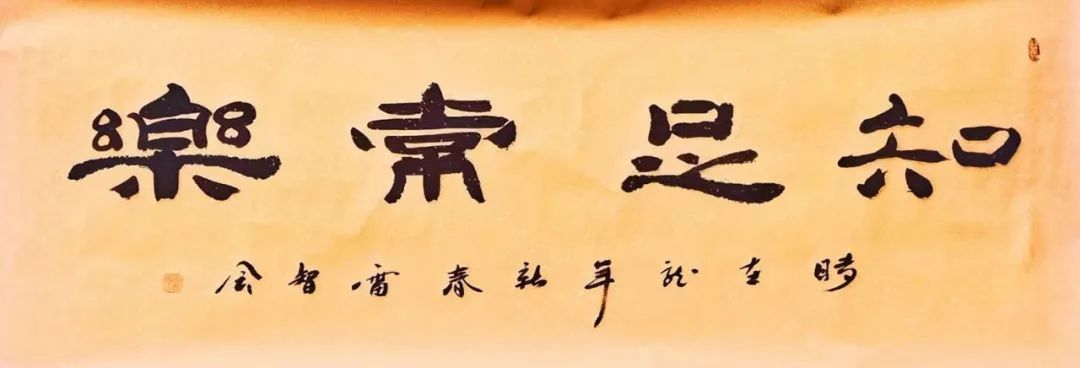 知足常樂
時在龍年新春雷智会